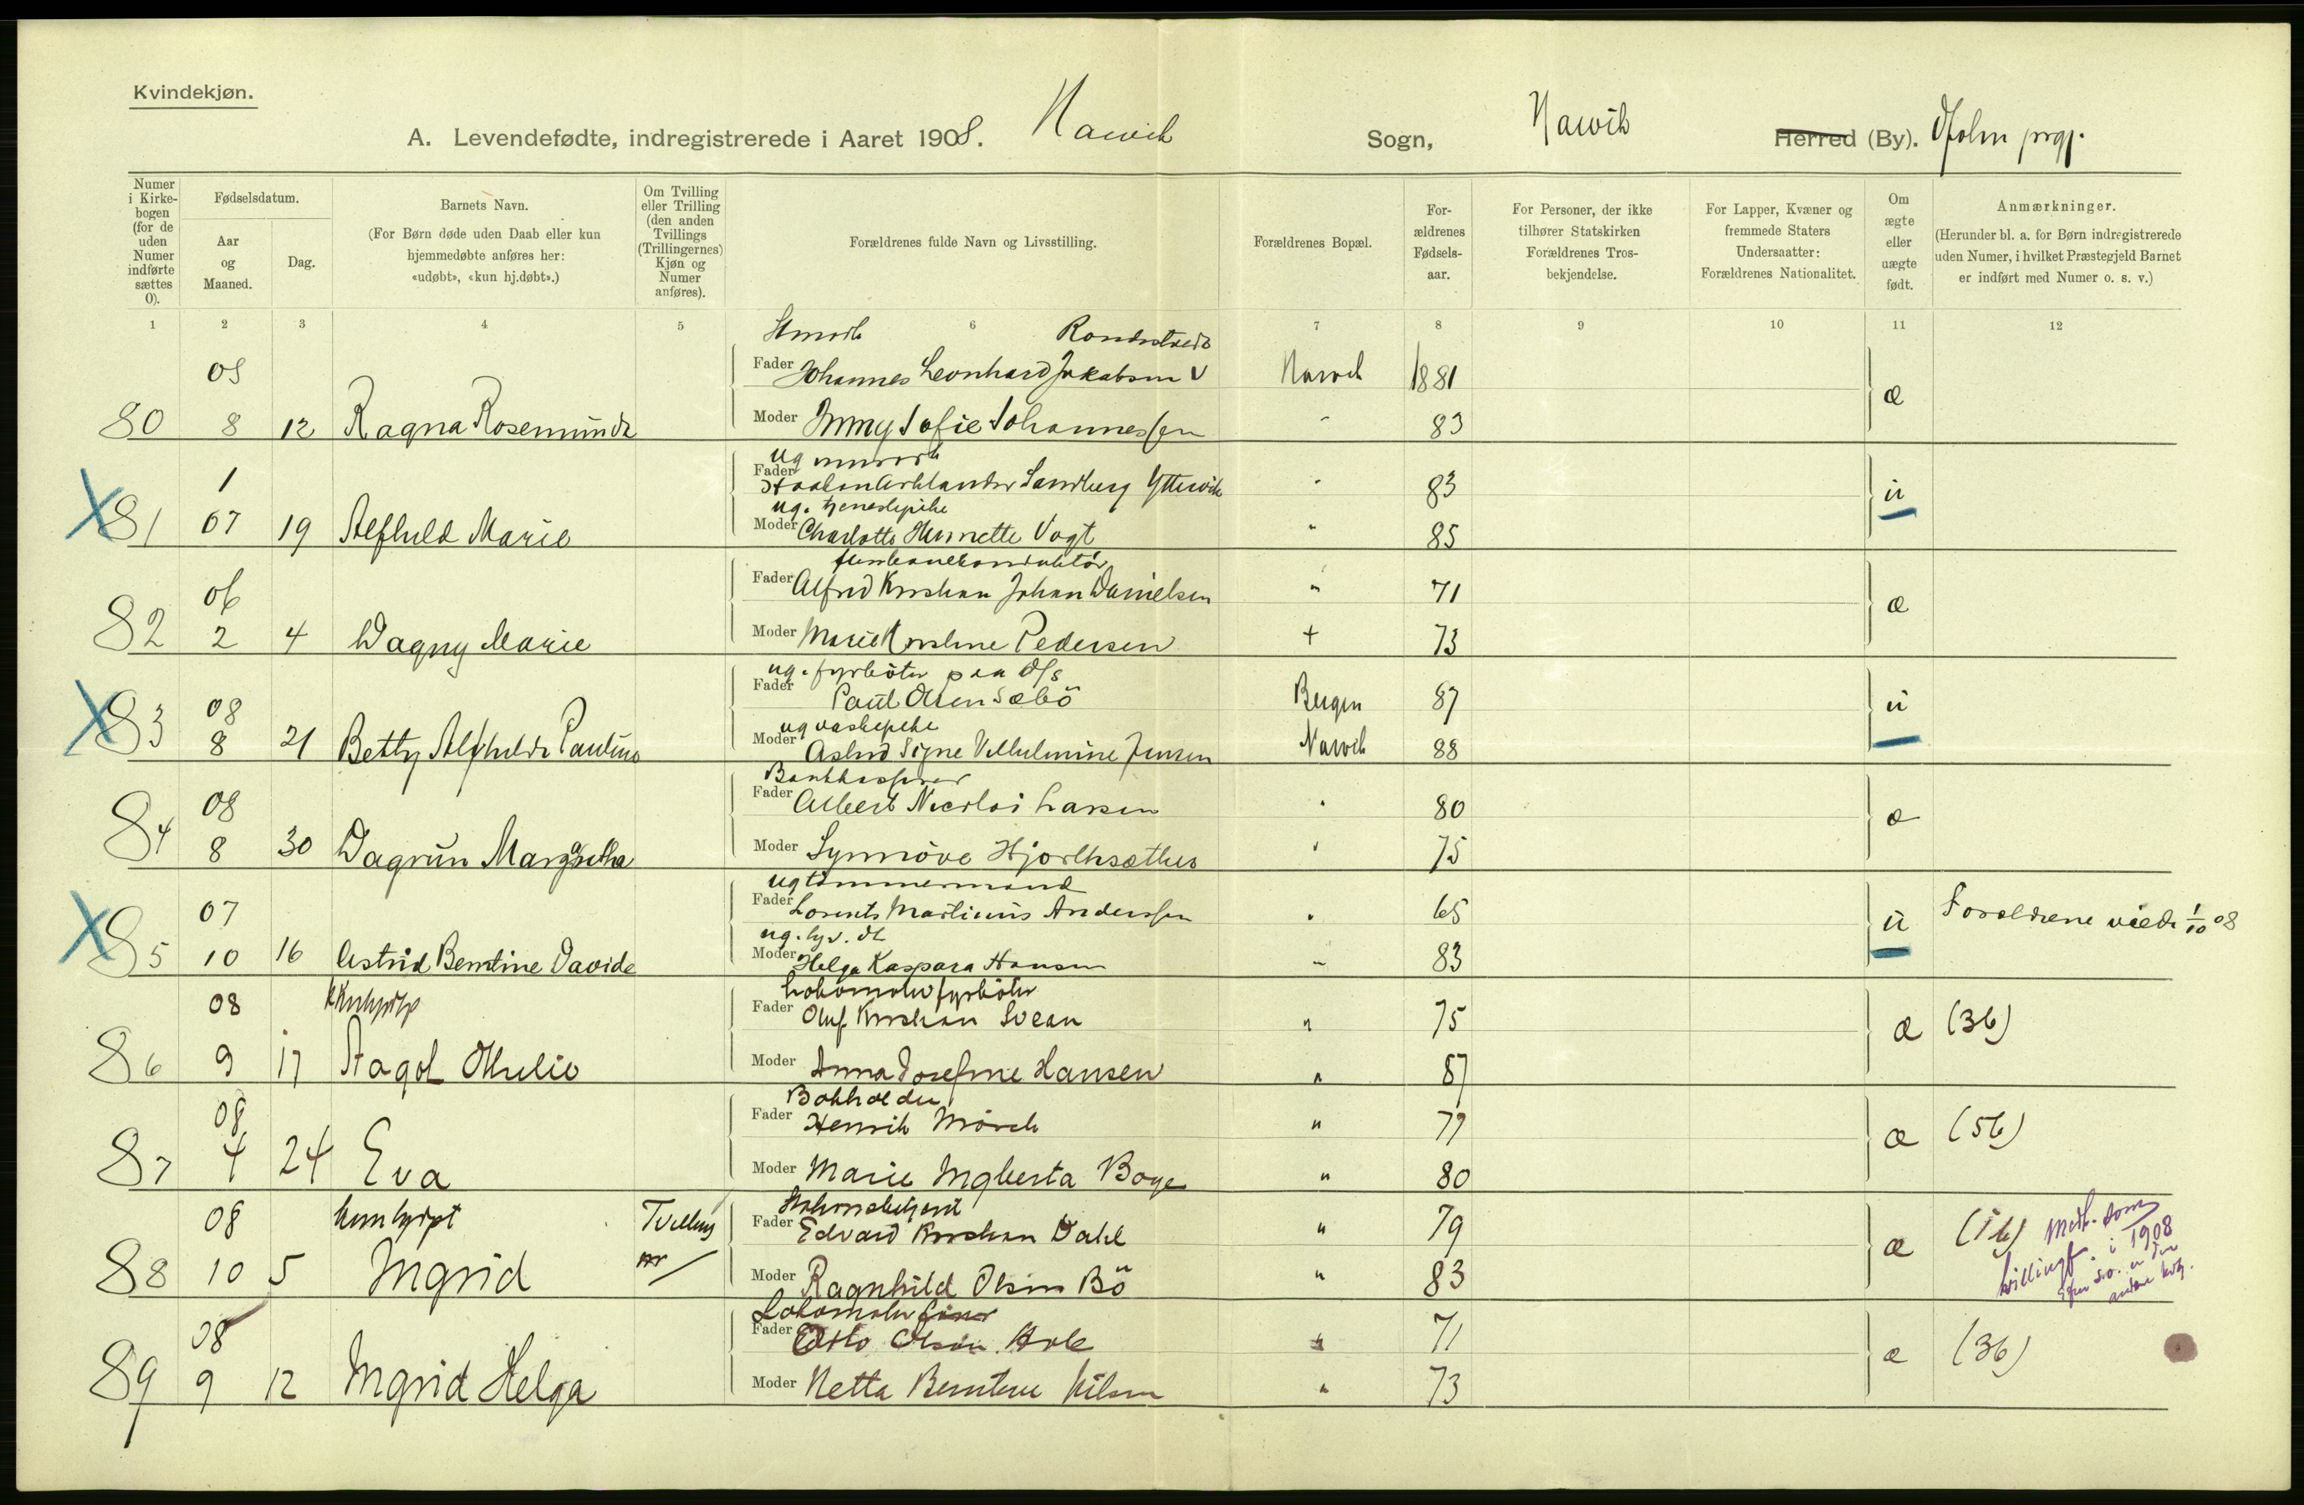 Kvindekjøn.
A. Levendefødte, indregistrerede i Aaret 1908. Narvik Sogn, Narvik Herred (By). Ofoten prgj.
Numer i Kirkebogen (for de uden Numer indførte sættes 0).
Fødselsdatum.
Aar og Maaned.
Dag.
Barnets Navn.
(For Børn døde uden Daab eller kun hjemmedøbte anføres her: «udøbt», «kun hj.døbt».)
Om Tvilling eller Trilling (den anden Tvillings (Trillingernes) Kjøn og Numer anføres).
Forældrenes fulde Navn og Livsstilling.
Forældrenes Bopæl.
Forældrenes Fødselsaar.
For Personer, der ikke tilhører Statskirken Forældrenes Trosbekjendelse.
For Lapper, Kvæner og fremmede Staters Undersaatter: Forældrenes Nationalitet.
Om ægte eller uægte født.
Anmærkninger.
(Herunder bl. a. for Børn indregistrerede uden Numer, i hvilket Præstegjeld Barnet er indført med Numer o. s. v.)
1 2 3 4 5 6 7 8 9 10 11 12
08
Fader Johannes Leonhard Jakobsen Narvik 1881
80 8 12 Ragna Rosemunda Moder Jenny Sofie Johannessen " 83 æ
ug
1 Fader Haakon Arhlander Sandberg Yttervik " 83
ug. tjenestepike
X 81 07 19 Alfhild Marie Moder Charlotte Henriette Vogt " 85 u
jernbanekonduktør
06 Fader Alfred Kristian Johan Danielsen " 71
82 2 4 Dagny Marie Moder Marie Kristine Pedersen + 73 æ
ug. fyrbøter paa D/S
08 Fader Paul Olsen Sæbö Bergen 87
ug vaskepike
X 83 8 21 Betty Alfhilda Pauline Moder Astrid Signe Vilhelmine Jensen Narvik 88 u
Bankkasserer
08 Fader Albert Nicolai Larsen " 80
84 8 30 Dagrun Margretha Moder Synnöve Hjorthsæther " 75 æ
ug tömmermand
07 Fader Lorents Martinius Anderssen " 65
X 85 10 16 Astrid Berntine Davida Moder Helga Kaspara Hansen " 83 u Foreldrene viede 1/10 08
Lokomotivfyrbøter
08 Fader Oluf Kristian Svean " 75
86 9 17 Aagot Othilie Moder Anna Josefine Hansen " 87 æ (36)
Bokholder
08 Fader Henrik Mörch " 79
87 4 24 Eva Moder Marie Ingberta Boye " 80 æ (56)
08 Tvilling Fader Edvard Kristian Dahl " 79
88 10 5 Ingrid Moder Ragnhild Olsen Bö " 83 æ (16) medt. som tvillingf. i 1908
08 Fader Otto Olsen Hole " 71
89 9 12 Ingrid Helga Moder Netta Berntine Nilsen " 73 æ (36)